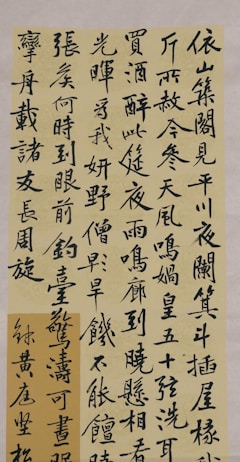 依山築閣見平川夜闌箕斗插屋椽我
斤所赦今參天風鳴媧皇五十弦洗耳
買酒醉此筵夜雨鳴廊到曉懸相看
光暉為我妍野僧旱饑不能饘
張侯何時到眼前釣臺驚濤可晝眠
攣舟載諸友長周旋
錄黃庭堅松